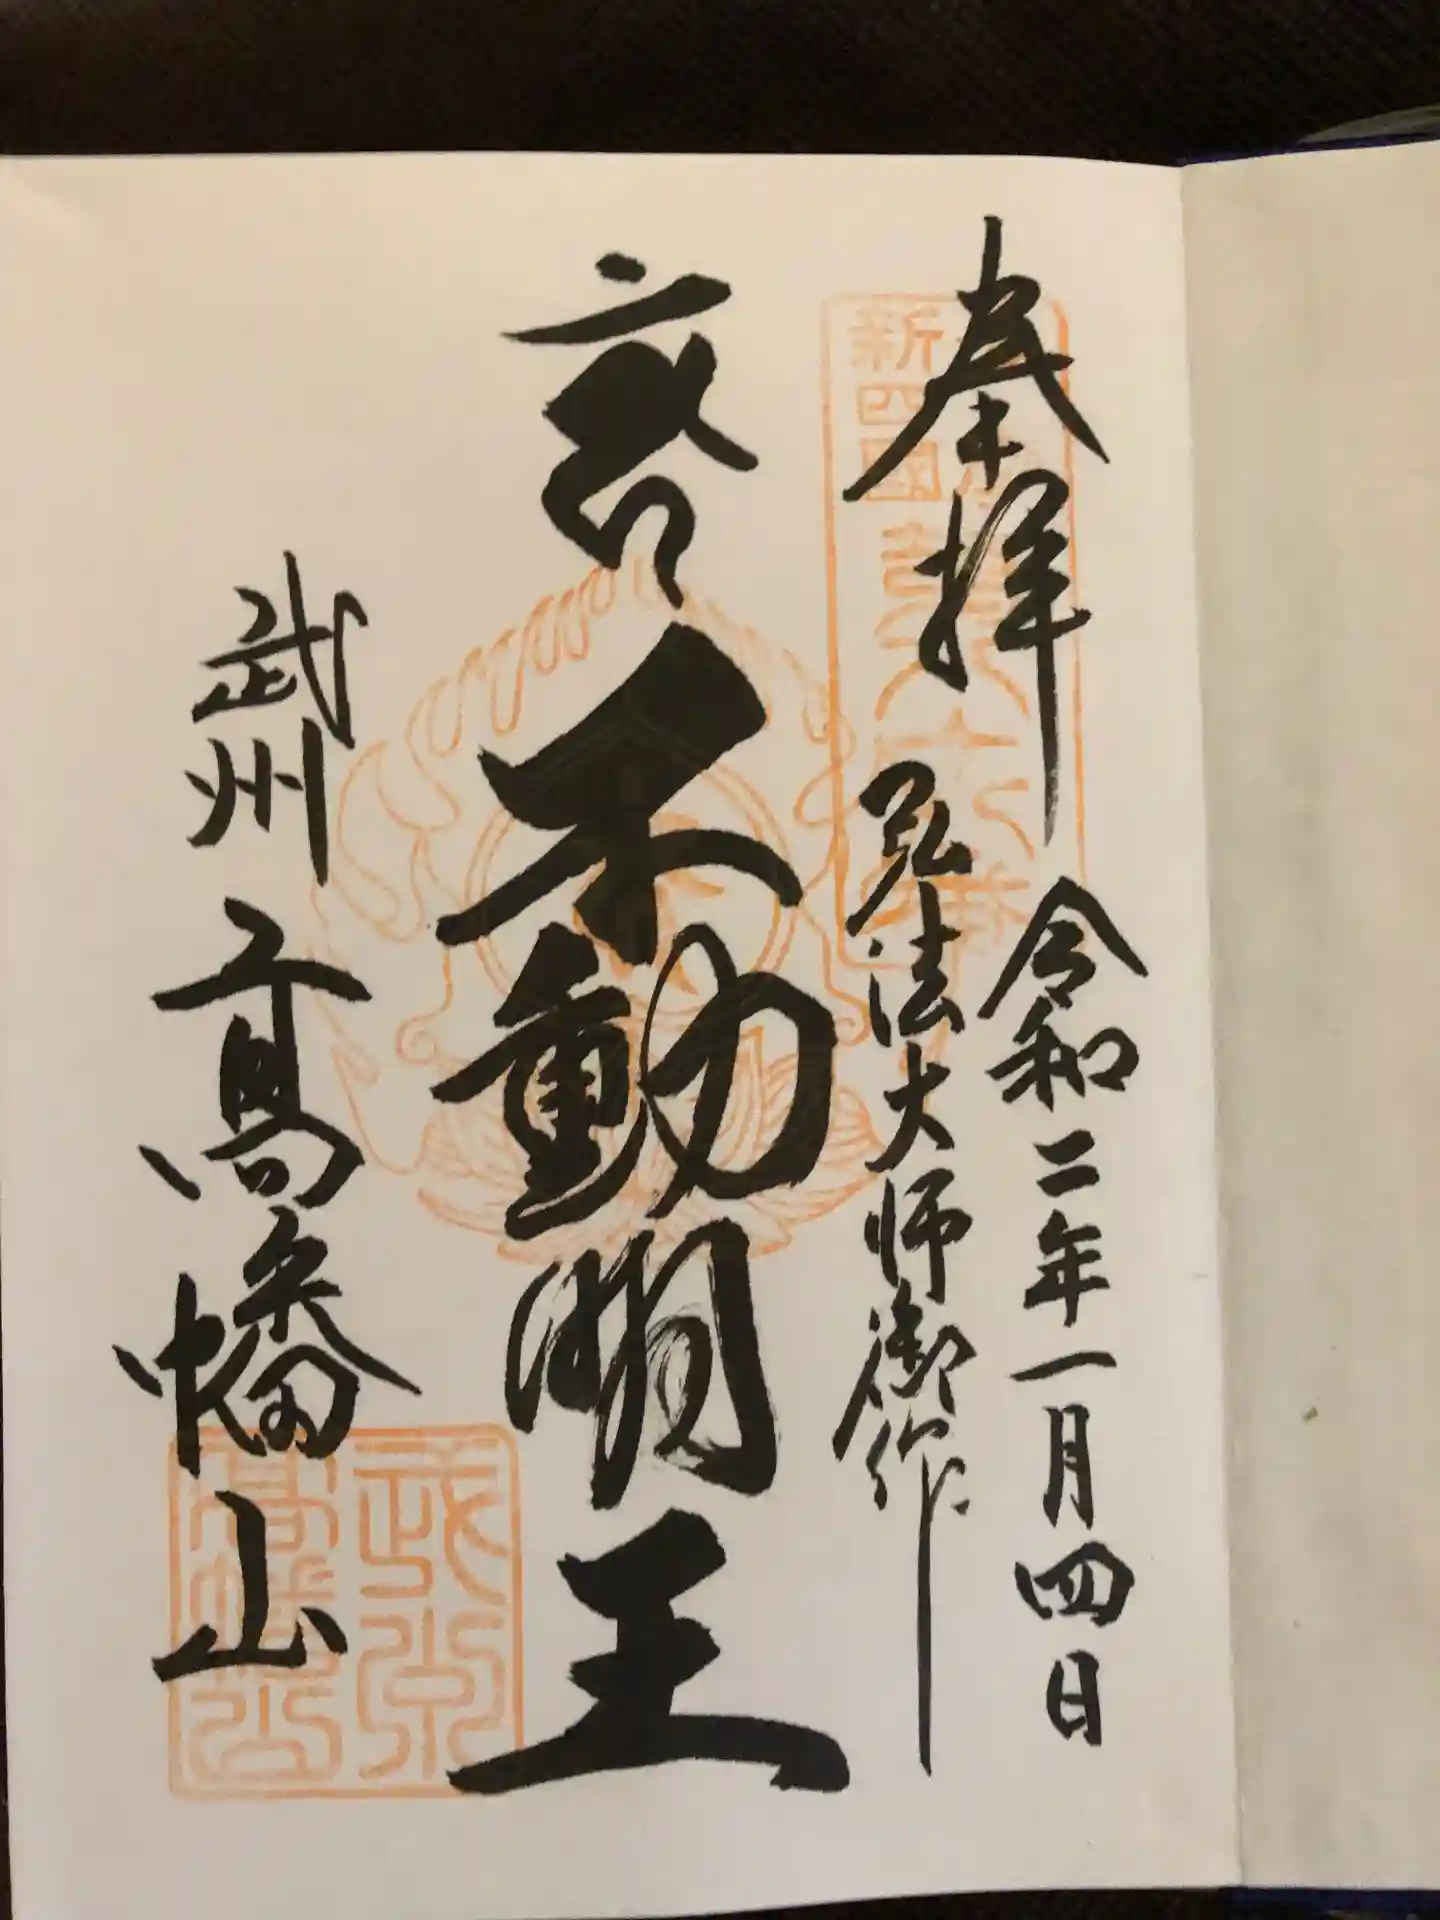 奉拝
令和二年一月四日
新四國
弘法大師御作
不動明王
武州 髙幡山
武州
高幡山